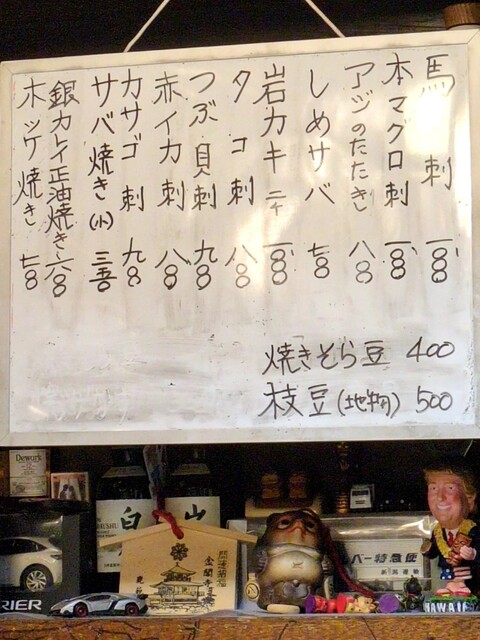 馬刺 一〇〇〇
本マグロ刺 一〇〇〇
アジのたたき 八〇〇
しめサバ 七〇〇
岩カキ 二ケ 一〇〇〇
タコ刺 八〇〇
つぶ貝刺 九〇〇
赤イカ刺 八〇〇
カサゴ刺 九〇〇
サバ焼き(小) 三五〇
銀カレイ正油焼き 六〇〇
ホッケ焼き 七〇〇
焼きそら豆 400
枝豆(地物) 500
Dewar's
白
山
開運招福
バー特急便
RIER
HAWAII